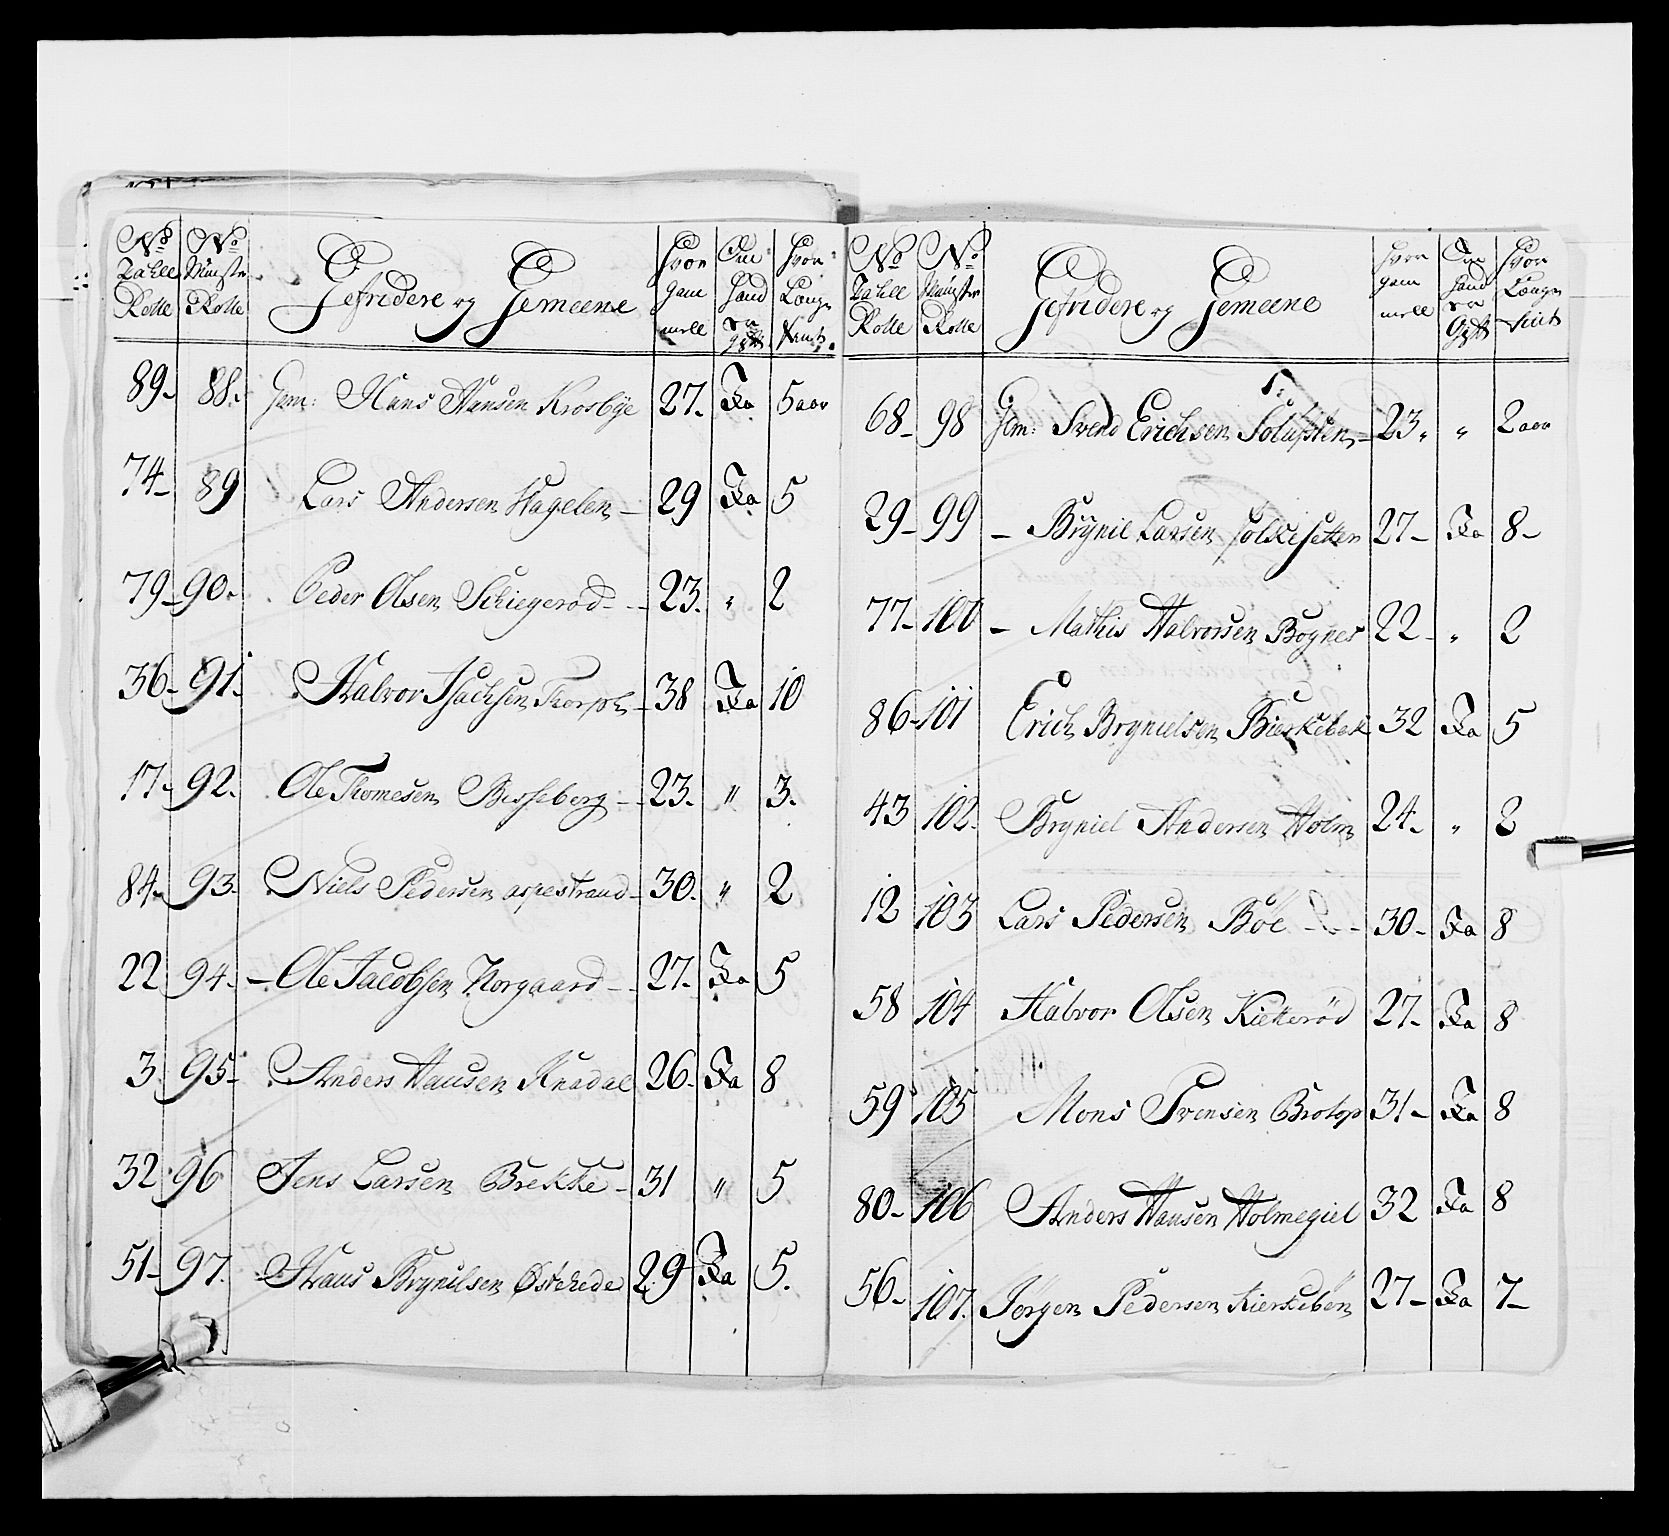 No Zahll Rolle | No Münster Rolle | Gefridere og Gemeene | Hvor gam mell | Om hand er gift | Hvor Længe tient
89 88 Gem: Hans Hansen Krosbye 27 Ja 5 aar
74 89 Lars Andersen Hagelen 29 Ja 5
79 90 Peder Olsen Schiegerød 23 " 2
36 91 Halvor Isachsen Torph 38 Ja 10
17 92 Ole Thomesen Besseberg 23 " 3
84 93 Niels Pedersen aspestrand 30 " 2
22 94 Ole Jacobsen Norgaard 27 Ja 5
3 95 Anders Hansen Knadal 26 Ja 8
32 96 Jens Larsen Brekke 31 " 5
51 97 Hans Brynilsen Østehede 29 Ja 5
No Zahll Rolle | No Münster Rolle | Gefridere og Gemeene | Hvor gam mell | Om hand er Gift | Hvor Længe tient
68 98 Gem: Svend Erichsen 23 " 2 aar
29 99 Brynil Larsen folkesetter 27 Ja 8
77 100 Mathis Halvorsen Bognes 22 " 2
86 101 Erich Brynielsen Bierkebek 32 Ja 5
43 102 Bryniel Andersen Holm 24 " 2
12 103 Lars Pedersen Böe 30 Ja 8
58 104 Halvor Olsen Kiekeröd 27 Ja 8
59 105 Mons Svensen Brotop 31 Ja 8
80 106 Anders Hansen Holmegiel 32 Ja 8
56 107 Jörgen Pedersen Kierkebön 27 Ja 7